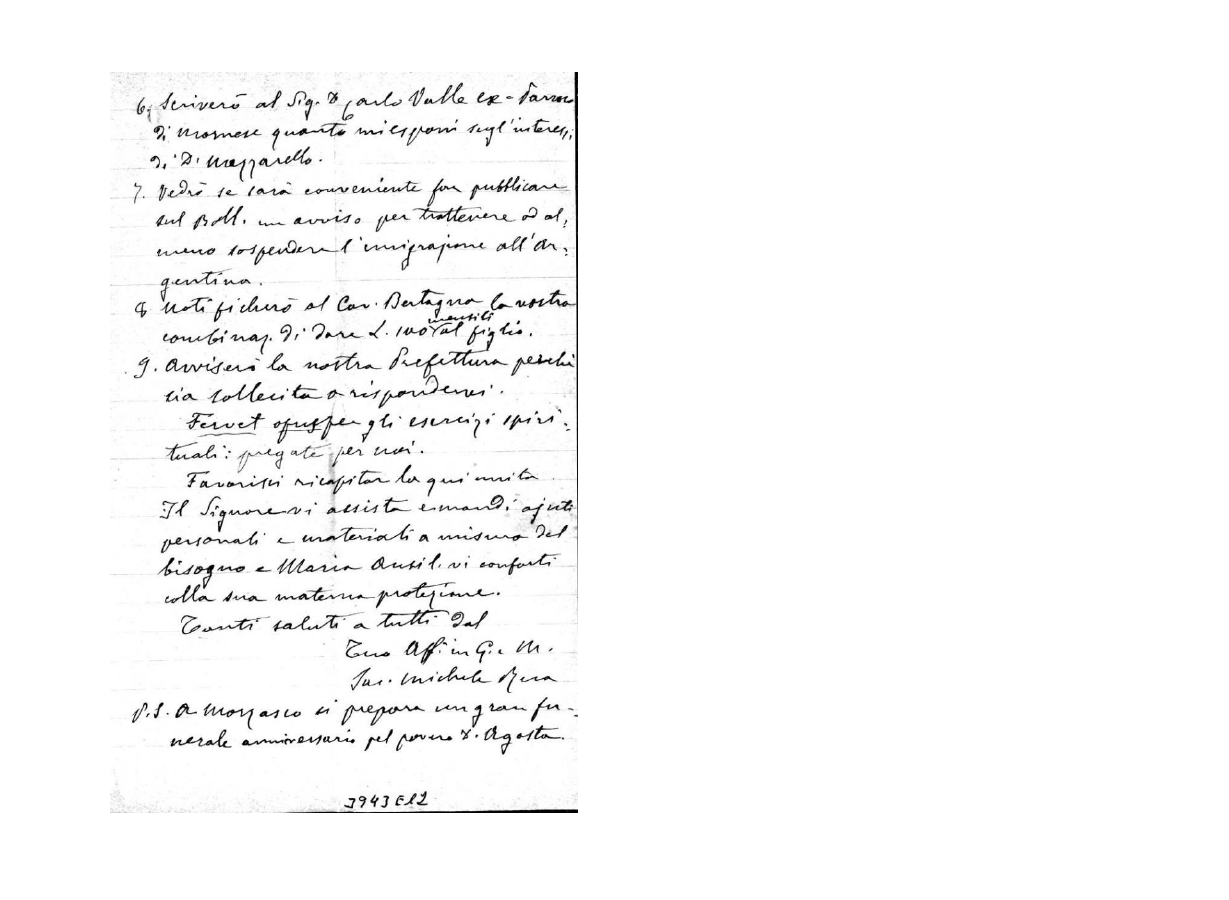 6. Scriverò al Sig. D. Carlo Valle ex-Parroco
di Mornese quanto mi esponi sugl'interessi
di D. Mazzarello.
7. Vedrò se sarà conveniente far pubblicare
sul Boll. un avviso per trattenere od al-
meno sospendere l'emigrazione all'Ar-
gentina.
8 Notificherò al Cav. Bertagna la nostra
combinaz. di dare L. 100 mensili al figlio.
9. Avviserò la nostra Prefettura perchè
sia sollecita a rispondervi.
Fervet opus per gli esercizi spiri-
tuali: pregate per noi.
Favorisci ricapitar la qui unita
Il Signore vi assista e mandi ajuti
personali e materiali a misura del
bisogno e Maria Ausil. vi conforti
colla sua materna protezione.
Tanti saluti a tutti dal
Tuo Aff. in G. e M.
Sac. Michele Rua
P.S. A Morzasco si prepara un gran fu-
nerale anniversario pel povero D. Agosta.
3943 E12